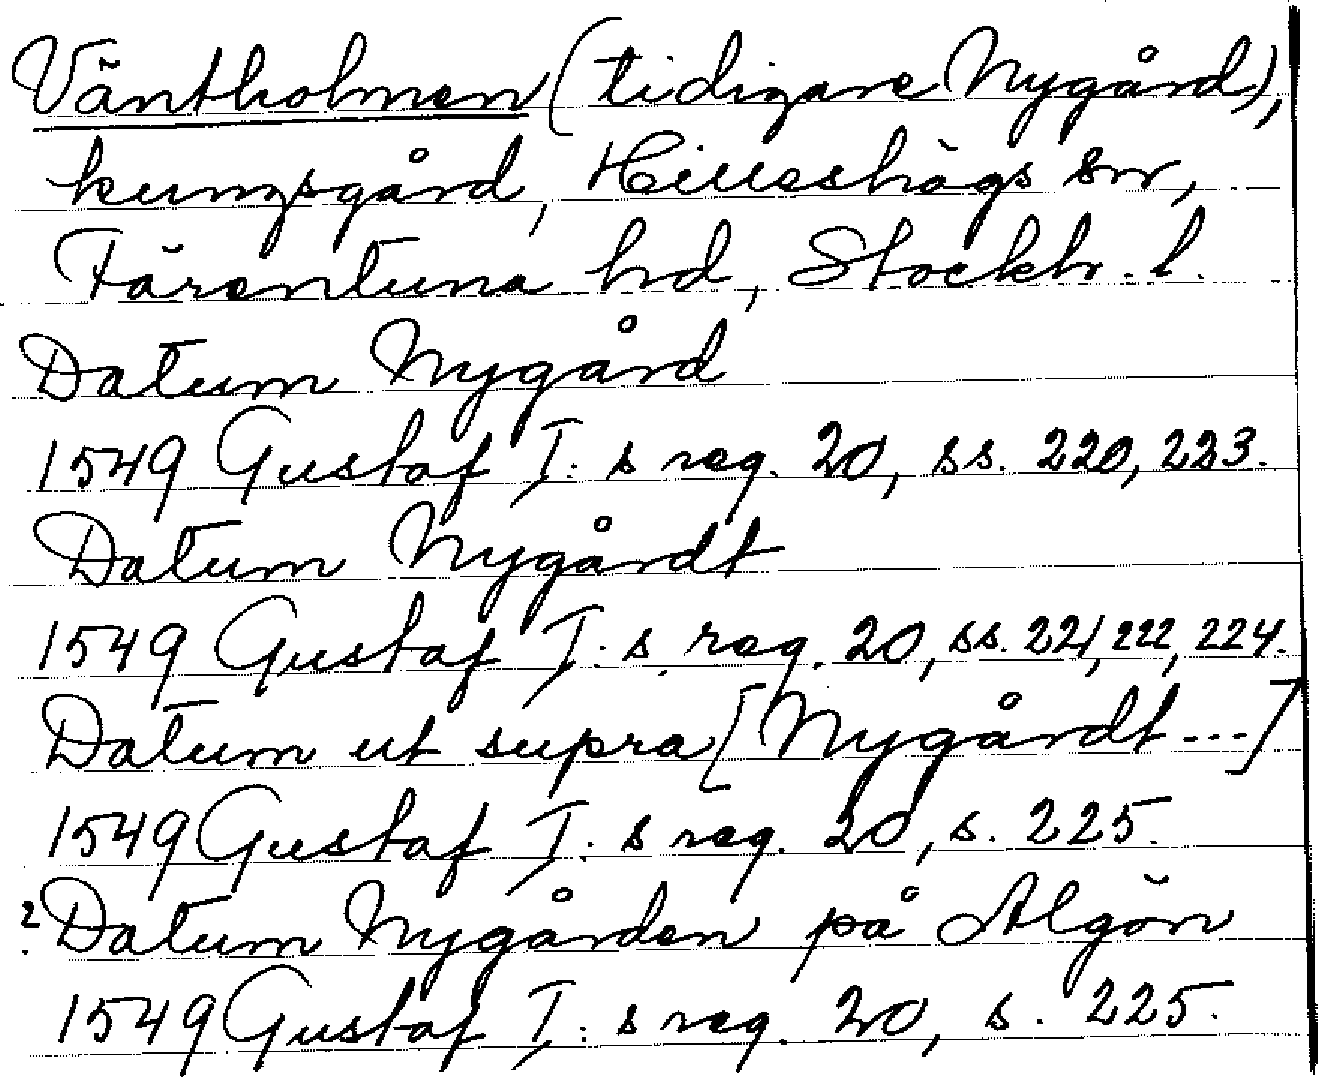 Väntholmen (tidigare Nygård),
kungsgård, Hilleshögs sn,
Färentuna hd, Stockh. l.
Datum Nygård
1549 Gustaf I:s reg. 20, ss. 220, 223.
Datum Nygårdt
1549 Gustaf I:s reg. 20, ss. 221, 222, 224.
Datum ut supra [Nygårdt ---]
1549 Gustaf I:s reg. 20, s. 225.
? Datum Nygården på Algön
1549 Gustaf I:s reg. 20, s. 225.